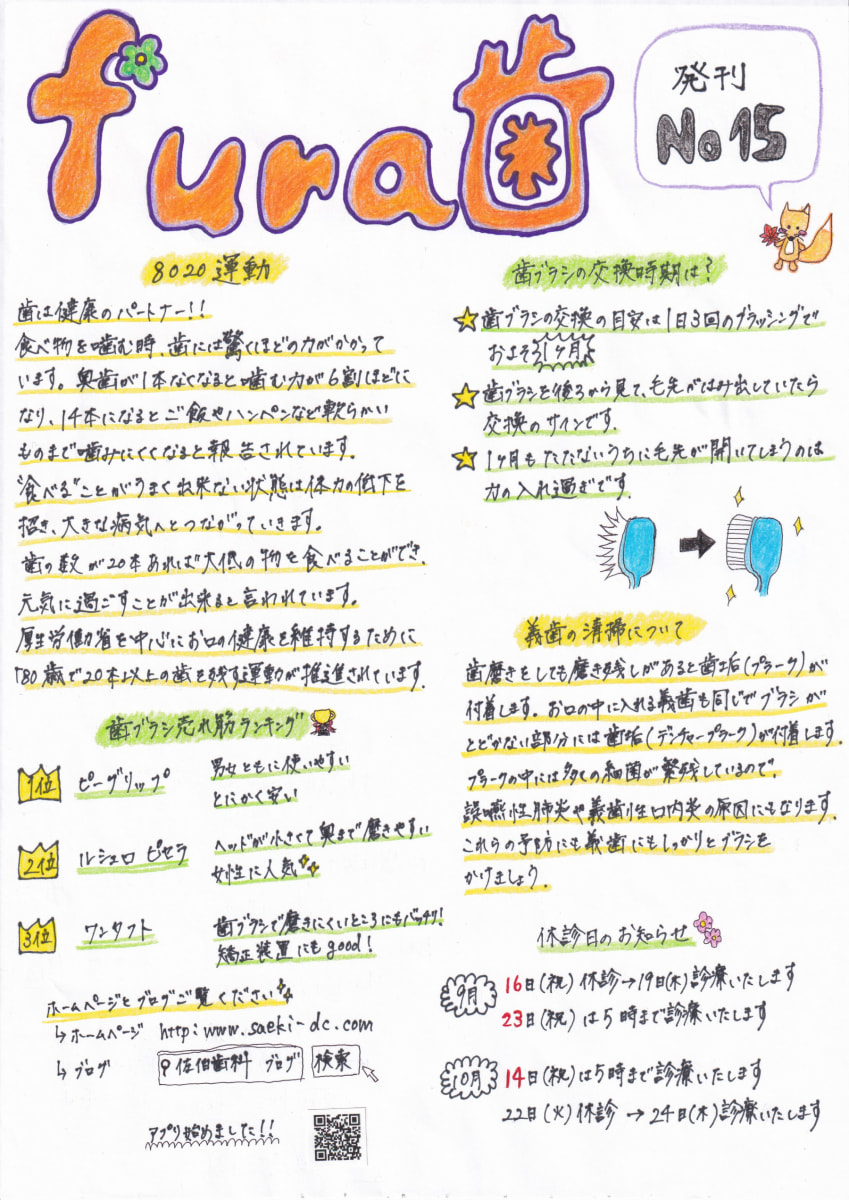 fura歯
発刊
No 15
8020運動
歯は健康のパートナー!!
食べ物を噛む時、歯には驚くほどの力がかかって
います。奥歯が1本なくなると噛む力が6割ほどに
なり、14本になるとご飯やハンペンなど軟らかい
ものまで噛みにくくなると報告されています。
"食べる"ことがうまく出来ない状態は体力の低下を
招き、大きな病気へとつながっていきます。
歯の数が20本あれば大低の物を食べることができ、
元気に過ごすことが出来ると言われています。
厚生労働省を中心にお口の健康を維持するために
「80歳で20本以上の歯を残す運動が推進されています。
歯ブラシ売れ筋ランキング
1位 ピーグリップ 男女ともに使いやすい
とにかく安い
2位 ルシェロ ピセラ ヘッドが小さくて奥まで磨きやすい
女性に人気
3位 ワンタフト 歯ブラシで磨きにくいところにもバッチリ!
矯正装置にもgood!
ホームページとブログご覧ください
↳ホームページ http:www.saeki-dc.com
↳ブログ 佐伯歯科 ブログ 検索
アプリ始めました!!
歯ブラシの交換時期は?
☆歯ブラシの交換の目安は1日3回のブラッシングで
およそ1ヶ月
☆歯ブラシを後ろから見て、毛先がはみ出していたら
交換のサインです。
☆1ヶ月もたたないうちに毛先が開いてしまうのは
力の入れ過ぎです。
義歯の清掃について
歯磨きをしても磨き残しがあると歯垢(プラーク)が
付着します。お口の中に入れる義歯も同じでブラシが
とどかない部分には歯垢(デンチャープラーク)が付着します。
プラークの中には多くの細菌が繁残しているので、
誤嚥性肺炎や義歯性口内炎の原因にもなります。
これらの予防にも義歯にもしっかりとブラシを
かけましょう。
休診日のお知らせ
9月 16日(祝)休診→19日(木)診療いたします
23日(祝)は5時まで診療いたします
10月 14日(祝)は5時まで診療いたします
22日(火)休診 →24日(木)診療いたします